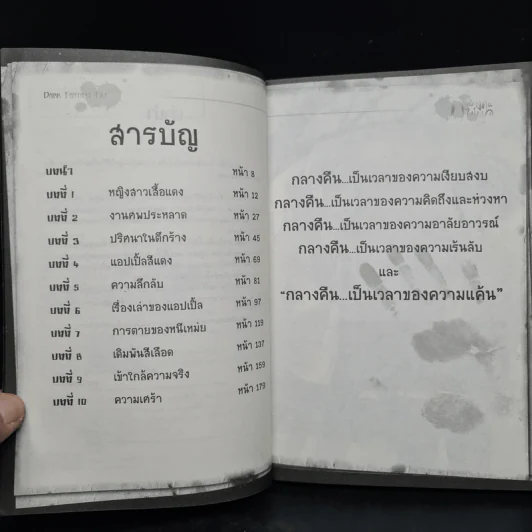 สารบัญ
บทนำ หน้า 8
บทที่ 1 หญิงสาวเสื้อแดง หน้า 12
บทที่ 2 งานศพประหลาด หน้า 27
บทที่ 3 ปริศนาในตึกร้าง หน้า 45
บทที่ 4 แอปเปิ้ลสีแดง หน้า 69
บทที่ 5 ความลึกลับ หน้า 81
บทที่ 6 เรื่องเล่าของแอปเปิ้ล หน้า 97
บทที่ 7 การตายของหนีเหม่ย หน้า 119
บทที่ 8 เดิมพันสีเลือด หน้า 137
บทที่ 9 เข้าใกล้ความจริง หน้า 159
บทที่ 10 ความเศร้า หน้า 179
กลางคืน...เป็นเวลาของความเงียบสงบ
กลางคืน...เป็นเวลาของความคิดถึงและห่วงหา
กลางคืน...เป็นเวลาของความอาลัยอาวรณ์
กลางคืน...เป็นเวลาของความเร้นลับ
และ
“กลางคืน...เป็นเวลาของความแค้น”